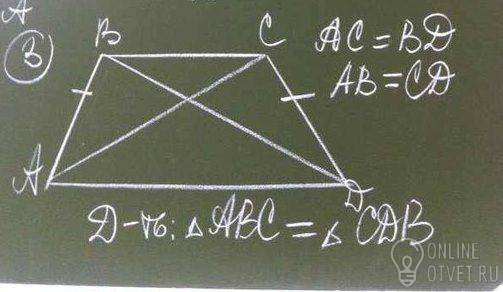 А
3
B C AC = BD
AB = CD
A D
Д-ть: △ABC = △CDB
ONLINE
OTVET.RU